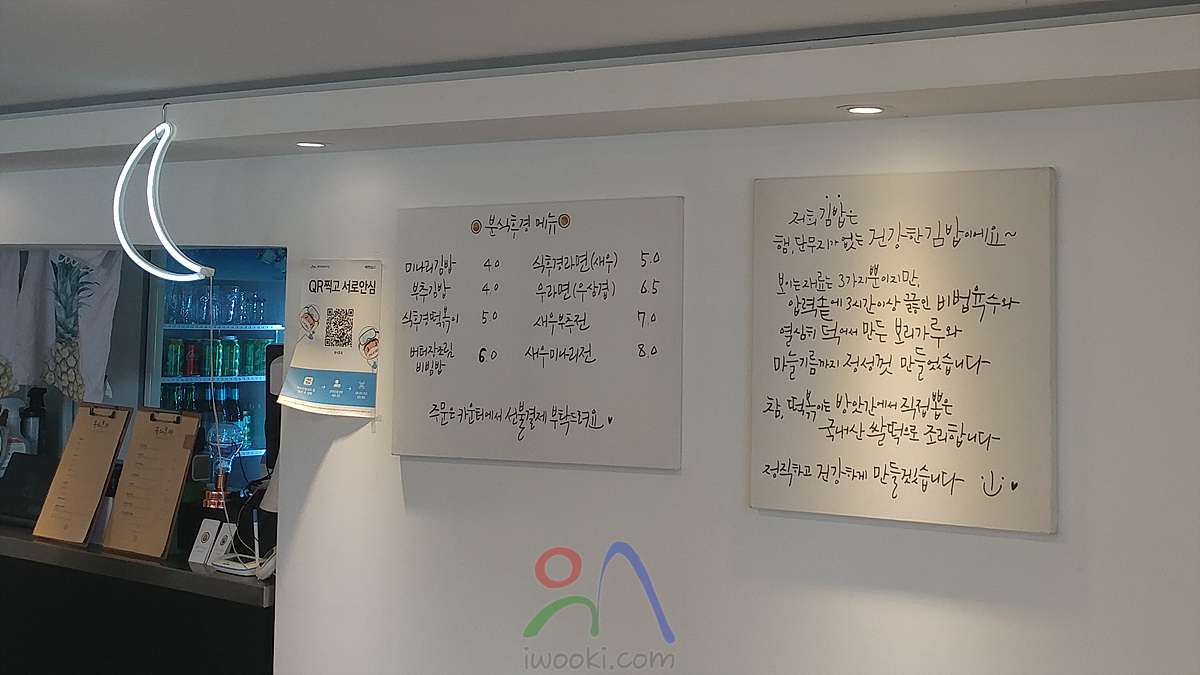 QR찍고 서로안심
분식후경 메뉴
미나리김밥 4.0
부추김밥 4.0
식후경떡볶이 5.0
버터장조림 비빔밥 6.0
식후경라면(새우) 5.0
우라면(우삼겹) 6.5
새우부추전 7.0
새우미나리전 8.0
주문은 카운터에서 선불결제 부탁드려요 ♥
저희 김밥은
햄, 단무지가 없는 건강한 김밥이에요~
보이는 재료는 3가지뿐이지만,
압력솥에 3시간이상 끓인 비법육수와
열심히 덖어서 만든 보리가루와
마늘기름까지 정성껏 만들었습니다
참, 떡볶이는 방앗간에서 직접뽑은
국내산 쌀떡으로 조리합니다
정직하고 건강하게 만들겠습니다 ♥
iwooki.com